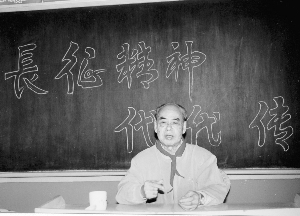 長征精神
代代传